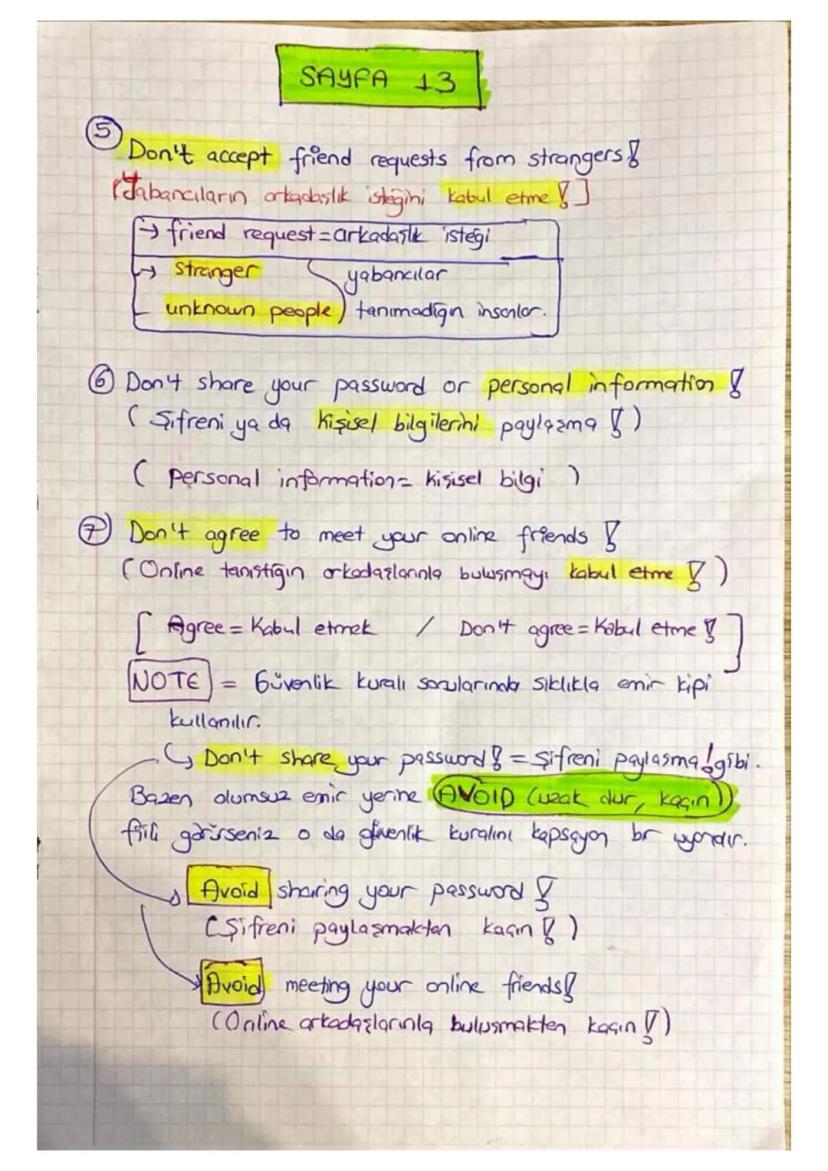 SAYFA 13
5
Don't accept friend requests from strangers!
[Yabancıların arkadaşlık isteğini kabul etme!]
→ friend request = arkadaşlık isteği
→ Stranger yabancılar
unknown people) tanımadığın insanlar.
6 Don't share your password or personal information!
(Şifreni ya da kişisel bilgilerini paylaşma!)
(Personal information = kişisel bilgi)
7 Don't agree to meet your online friends!
(Online tanıştığın arkadaşlarınla buluşmayı kabul etme!)
[Agree = Kabul etmek / Don't agree = Kabul etme!]
NOTE = Güvenlik kuralı sorularında sıklıkla emir kipi
kullanılır.
↳ Don't share your password! = Şifreni paylaşma! gibi.
Bazen olumsuz emir yerine AVOID (uzak dur, kaçın)
fiili görürseniz o da güvenlik kuralını kapsayan bir uyarıdır.
Avoid sharing your password!
(Şifreni paylaşmaktan kaçın!)
Avoid meeting your online friends!
(Online arkadaşlarınla buluşmaktan kaçın!)